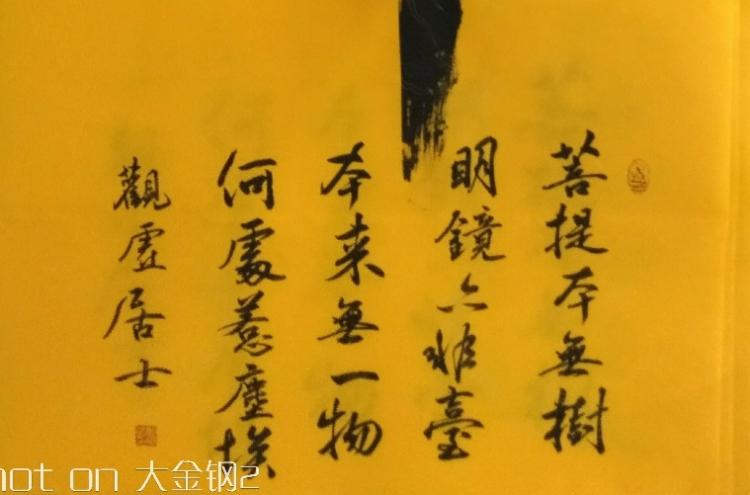 菩提本無樹
明鏡亦非臺
本來無一物
何處惹塵埃
觀虛居士
not on 大金钢2